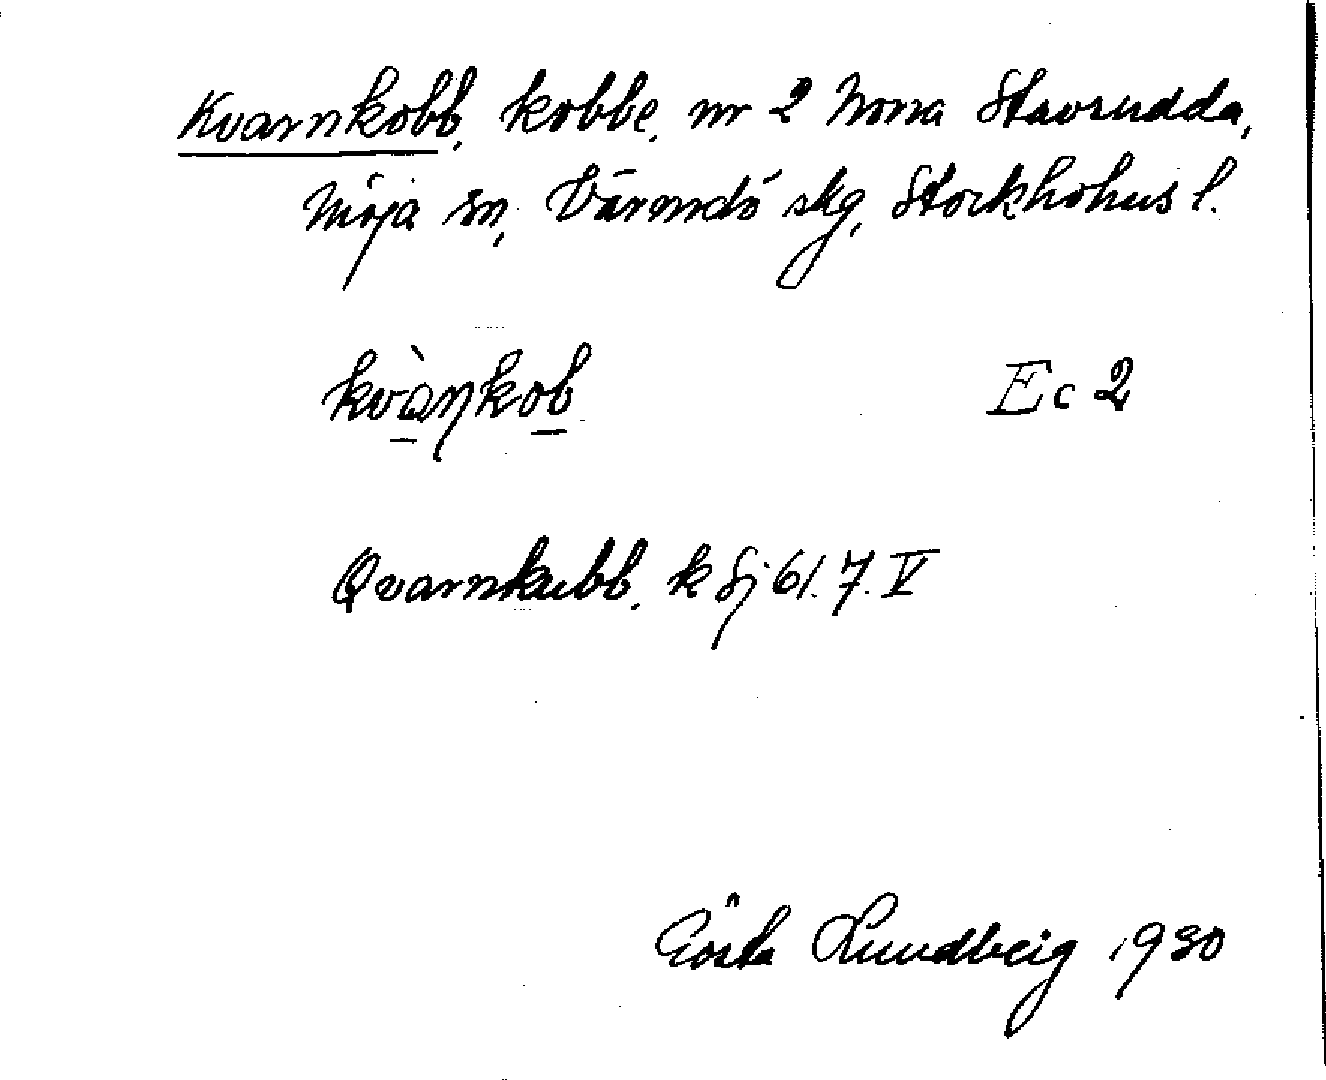 Kvarnkobb, kobbe, nr 2 Norra Stavsudda,
Möja sn, Värmdö skg, Stockholms l.
kvàṇkob Ec 2
Qvarnkubb. k Sj 61. 7. V
Gösta Lundberg 1930